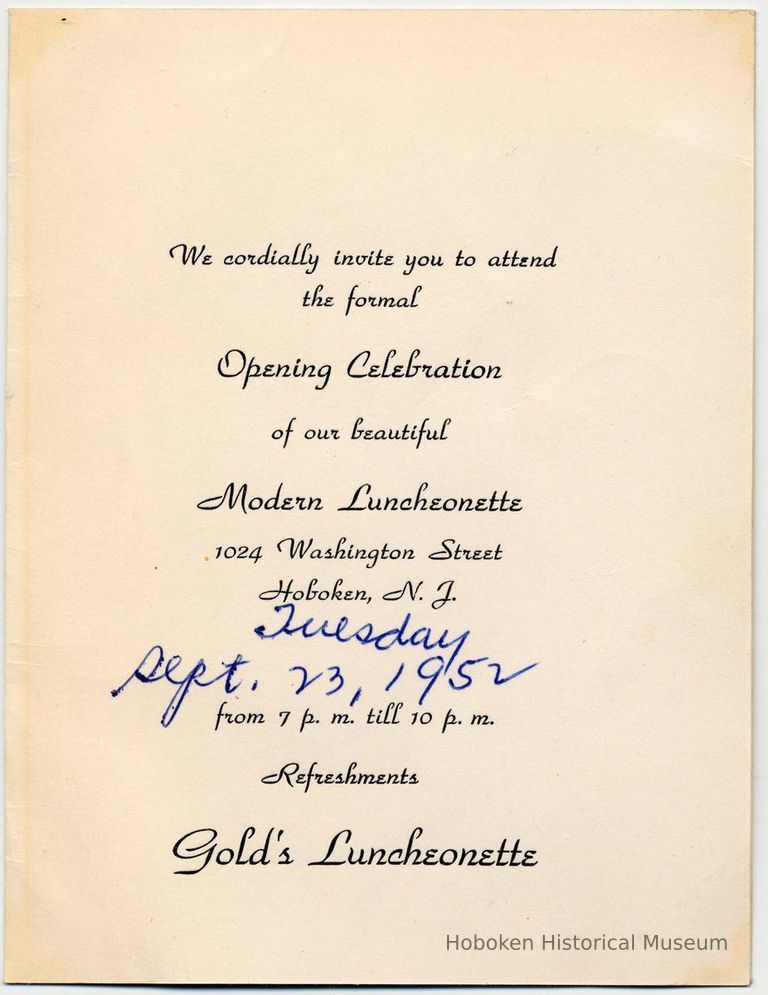 We cordially invite you to attend
the formal
Opening Celebration
of our beautiful
Modern Luncheonette
1024 Washington Street
Hoboken, N. J.
Tuesday
Sept. 23, 1952
from 7 p. m. till 10 p. m.
Refreshments
Gold's Luncheonette
Hoboken Historical Museum